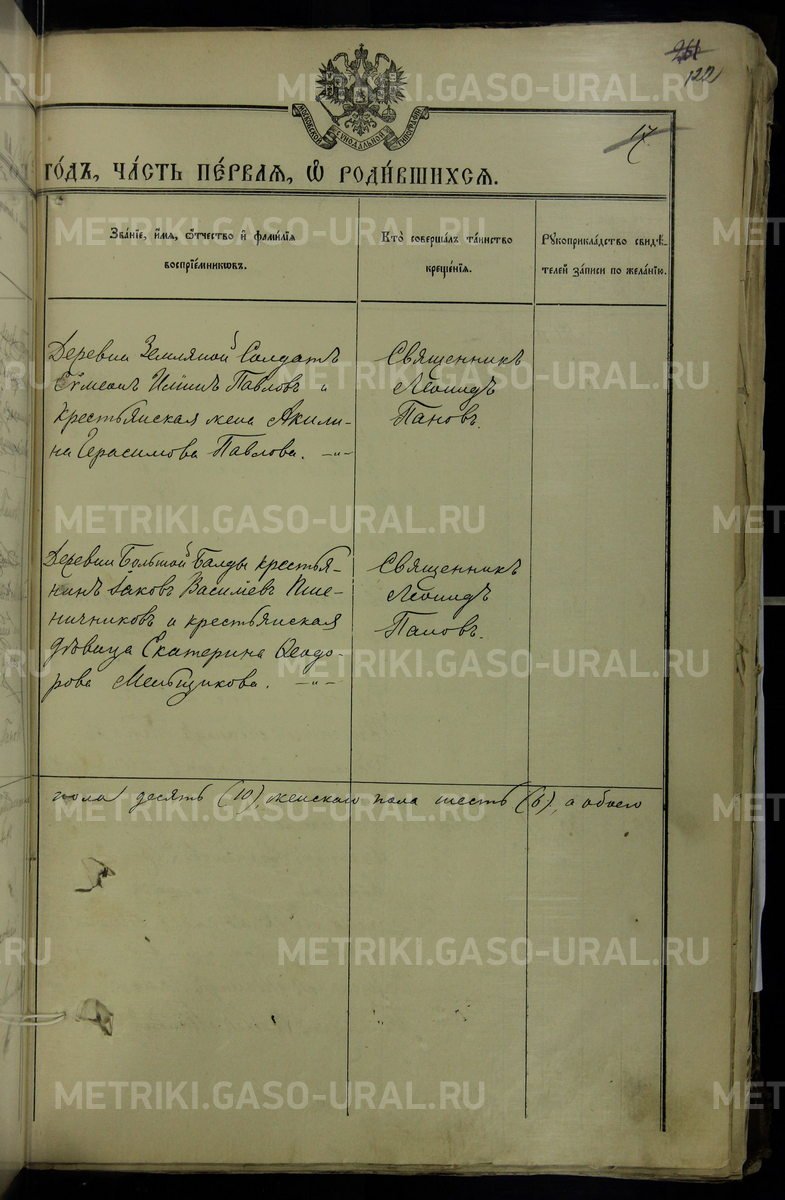 261
122
17
МОСКОВСКОЙ СѴНОДАЛЬНОЙ ТИПОГРАФІИ
ГО́ДЪ, ЧА́СТЬ ПЕ́РВАѦ, Ѡ҆ РОДИ́ВШИХСѦ.
Зва́нїе, и҆́мѧ, ѻ҆́тчество и҆ фами́лїѧ
воспрїе́мникѡвъ.
Кто̀ соверша́лъ та́инство
креще́нїѧ.
Рꙋкоприкла́дство свидѣ́-
телей за́писи по жела́нїю.
Деревни Земляной Солдатъ
Сѵмеонъ Павловъ и
крестьянская жена Акили-
на Герасимова Павлова. —"—
Священникъ
Леонидъ
Пановъ.
Деревни Большой Балды крестья-
нинъ Іаковъ Василіевъ Пше-
ничниковъ и крестьянская
дѣвица Екатерина Ѳеодо-
рова Мельщикова. —"—
Священникъ
Леонидъ
Пановъ.
пола десять (10), женскаго пола шесть (6), а обоего
METRIKI.GASO-URAL.RU